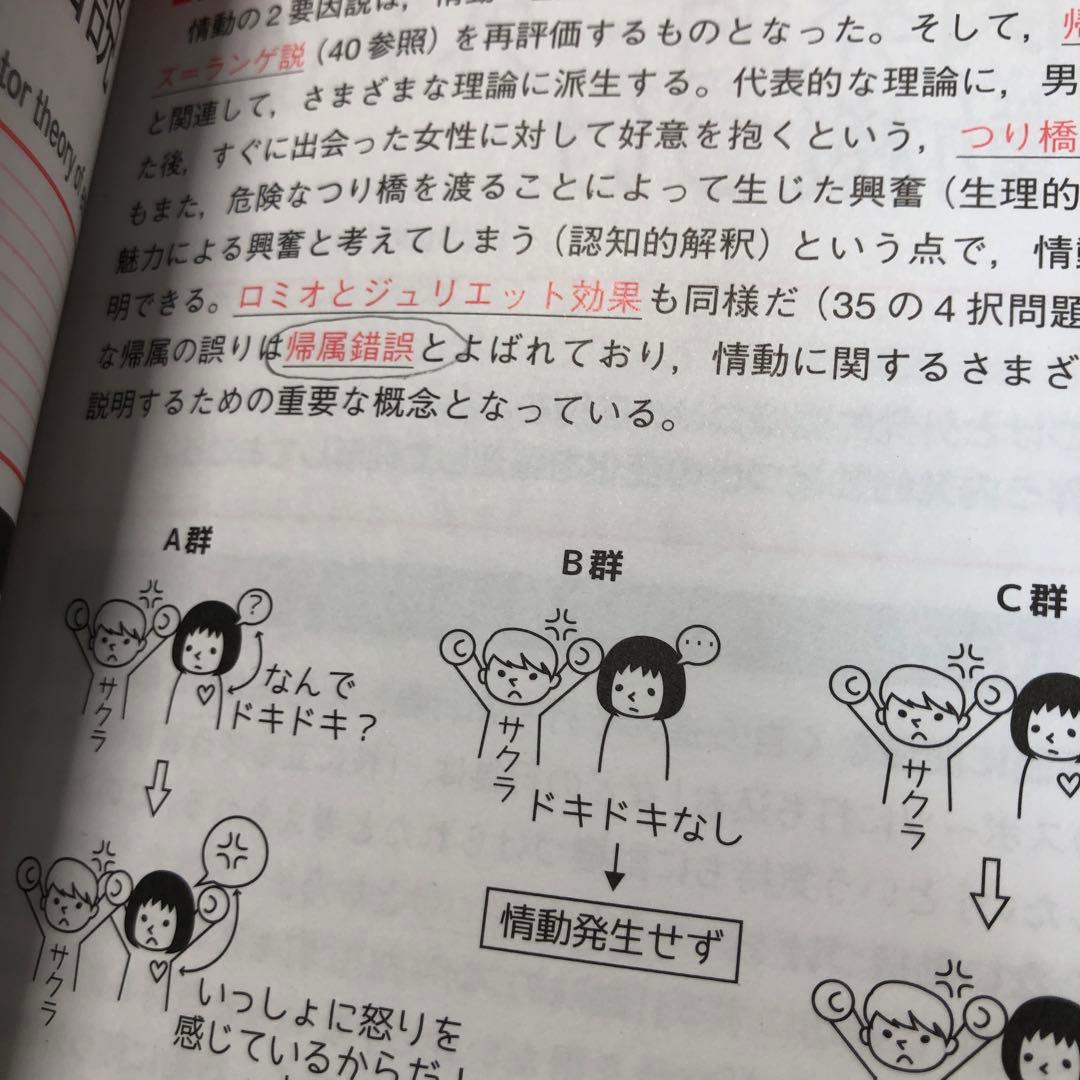 説
tor theory of
情動の2要因説は，情動
ズ＝ランゲ説（40参照）を再評価するものとなった。そして，帰
と関連して，さまざまな理論に派生する。代表的な理論に，男
た後，すぐに出会った女性に対して好意を抱くという，つり橋
もまた，危険なつり橋を渡ることによって生じた興奮（生理的
魅力による興奮と考えてしまう（認知的解釈）という点で，情動
明できる。ロミオとジュリエット効果も同様だ（35の4択問題
な帰属の誤りは帰属錯誤とよばれており，情動に関するさまざ
説明するための重要な概念となっている。
A群
B群
C群
?
…
なんで
ドキドキ？
サクラ
サクラ
サクラ
ドキドキなし
情動発生せず
サクラ
いっしょに怒りを
感じているからだ！